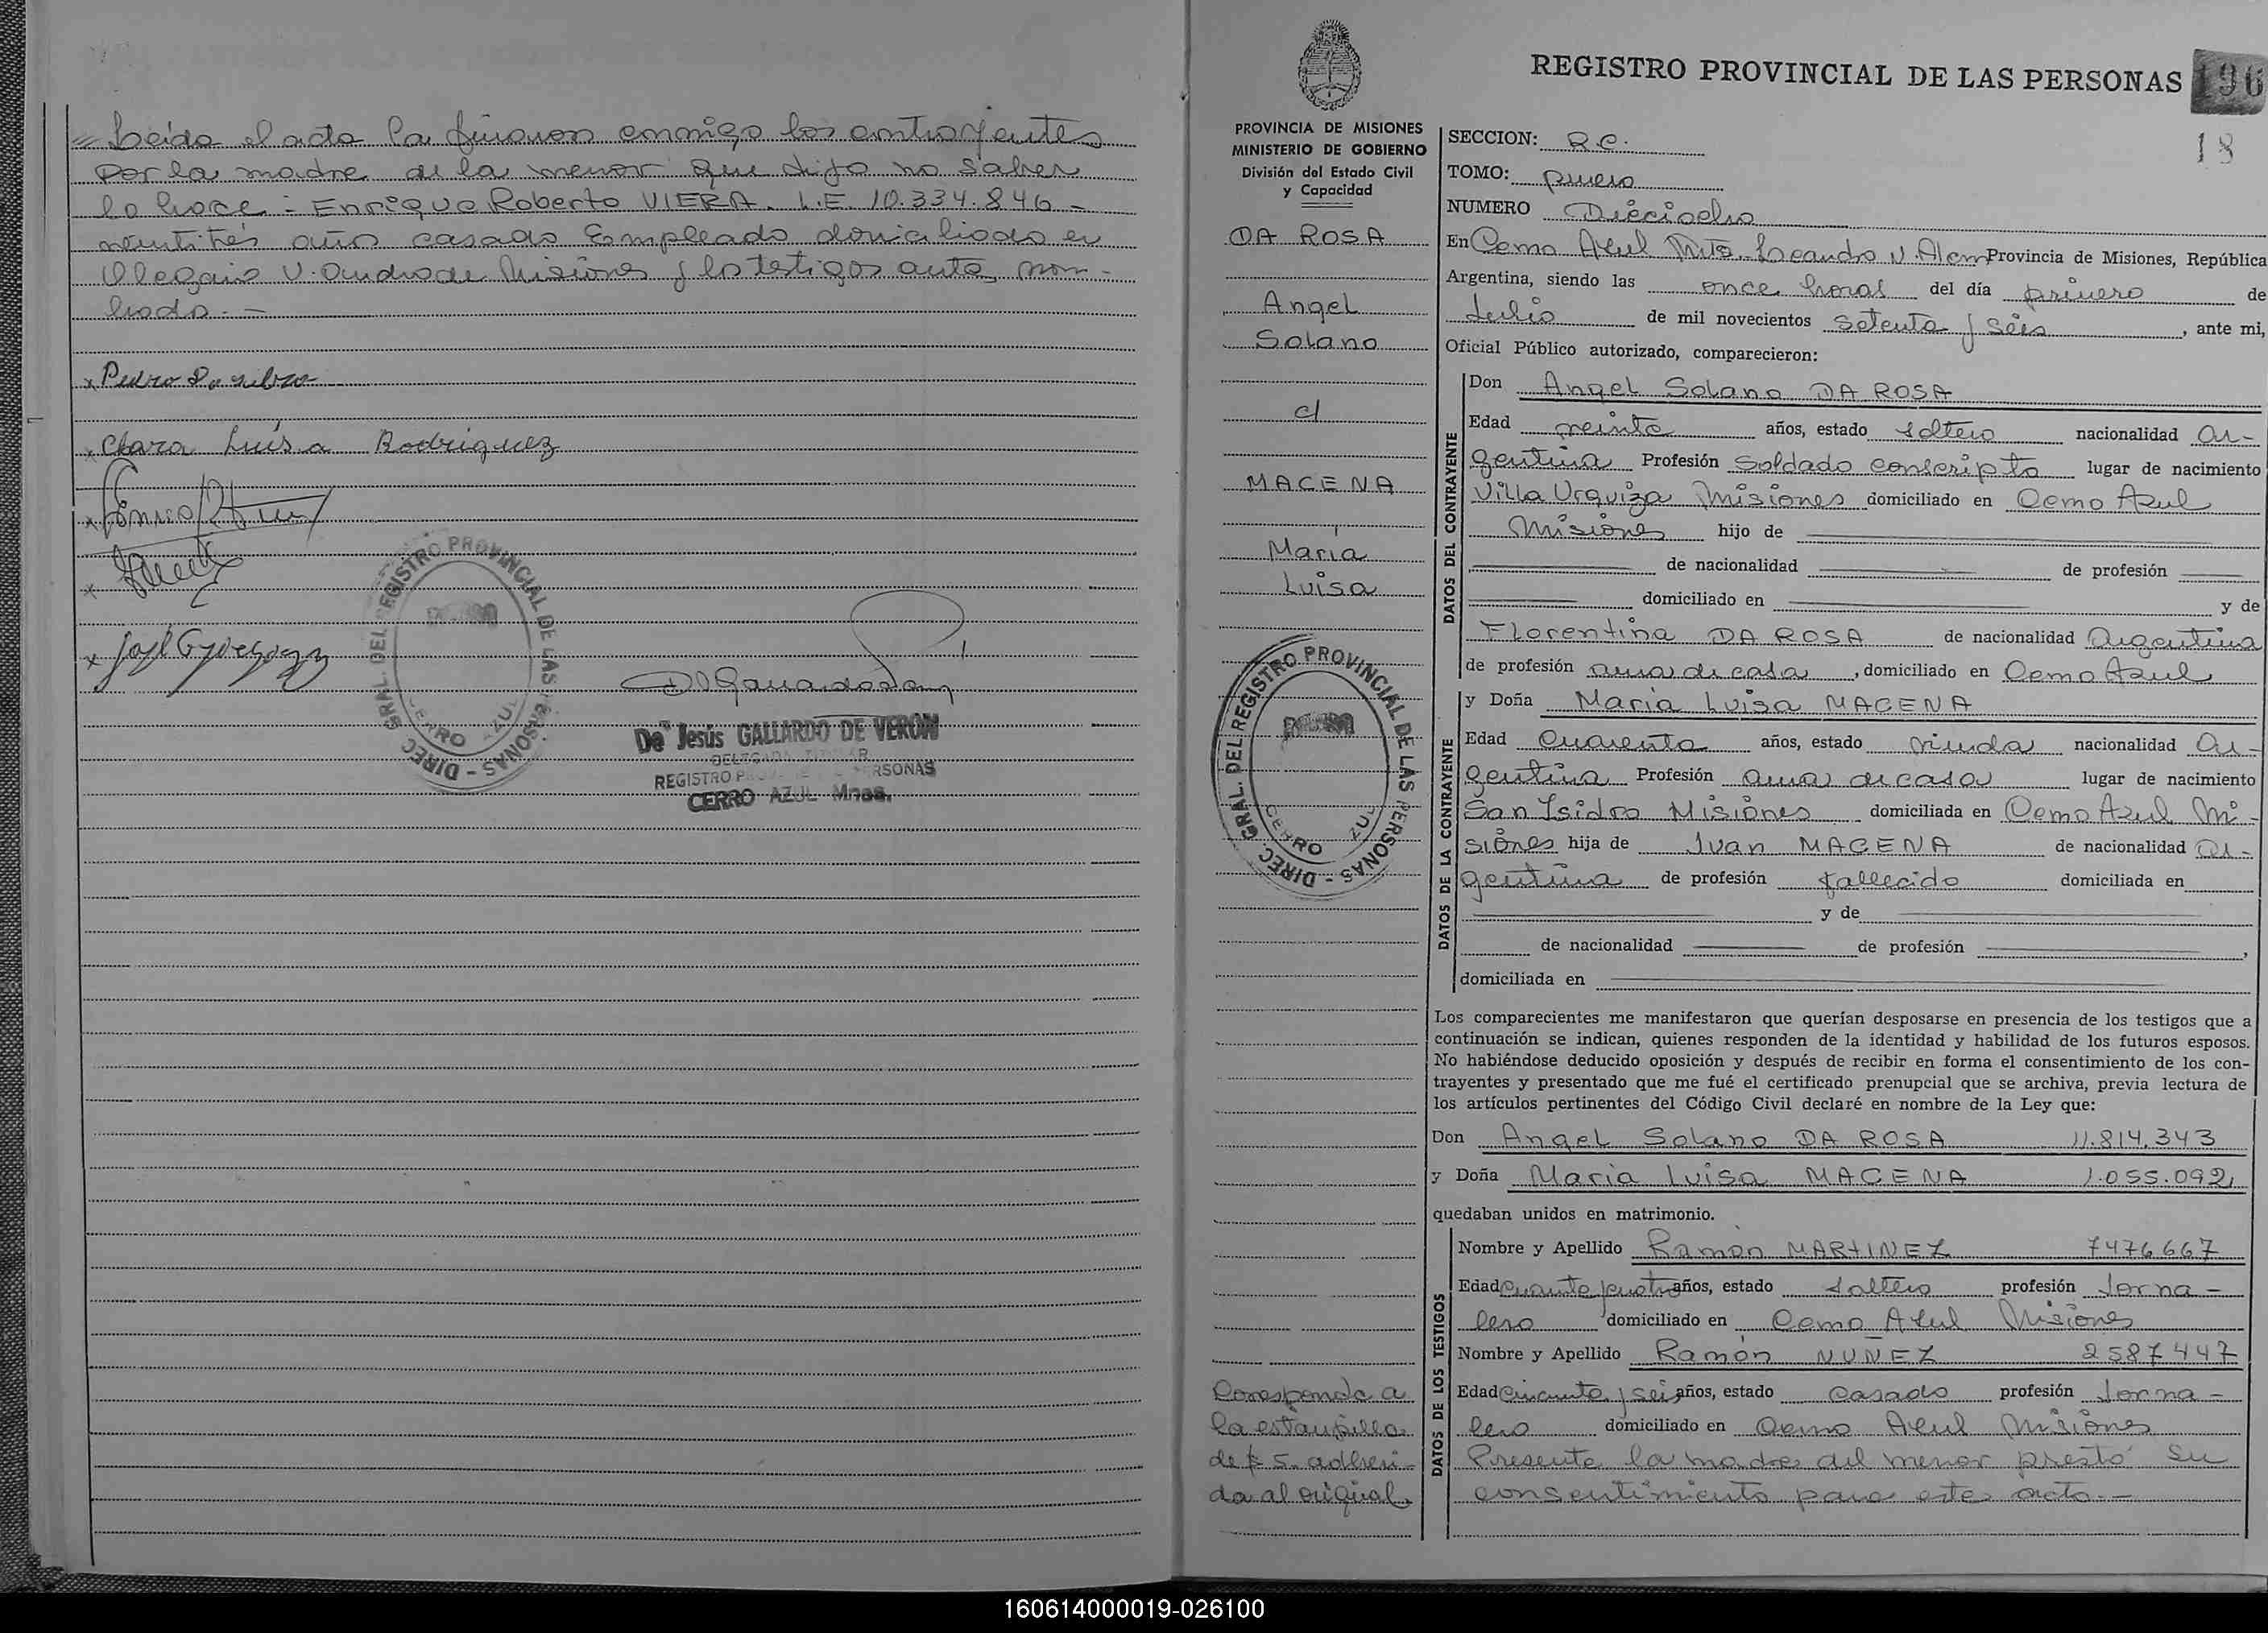 = Leida el acta la firman conmigo los contrayentes
Por la madre de la menor que dijo no saber
lo hace - Enrique Roberto VIERA. L.E. 10.334.846 -
veintitrés años casado Empleado domiciliado en
Olegario V. Andrade Misiones y los testigos ante nom-
brados. -
x Pedro Da
x Clara Luisa Rodriguez
x
x
x
GRAL. DEL REGISTRO PROVINCIAL DE LAS PERSONAS - DIREC
CERRO AZUL
De Jesús GALLARDO DE VERON
DELEGADA TITULAR
REGISTRO PERSONAS
CERRO AZUL Mnes.
REGISTRO PROVINCIAL DE LAS PERSONAS 196
18
PROVINCIA DE MISIONES
MINISTERIO DE GOBIERNO
División del Estado Civil
y Capacidad
DA ROSA
Angel
Solano
c/
MACENA
María
Luisa
GRAL. DEL REGISTRO PROVINCIAL DE LAS PERSONAS - DIREC
CERRO AZUL
Corresponde a
la estampilla
de $ 5.- adheri-
da al original.
SECCION: R.C.
TOMO: primero
NUMERO Dieciocho
En Cerro Azul Dpto. Leandro N. Alem Provincia de Misiones, República
Argentina, siendo las once horas del día primero de
Julio de mil novecientos setenta y séis, ante mi,
Oficial Público autorizado, comparecieron:
DATOS DEL CONTRAYENTE
Don Angel Solano DA ROSA
Edad veinte años, estado soltero nacionalidad ar-
gentina Profesión Soldado conscripto lugar de nacimiento
Villa Urquiza Misiones domiciliado en Cerro Azul
Misiones hijo de
de nacionalidad de profesión
domiciliado en y de
Florentina DA ROSA de nacionalidad argentina
de profesión ama de casa, domiciliado en Cerro Azul
DATOS DE LA CONTRAYENTE
y Doña María Luisa MACENA
Edad cuarenta años, estado viuda nacionalidad ar-
gentina Profesión ama de casa lugar de nacimiento
San Isidro Misiones domiciliada en Cerro Azul Mi-
siones hija de Juan MACENA de nacionalidad ar-
gentina de profesión fallecido domiciliada en
y de
de nacionalidad de profesión ,
domiciliada en
Los comparecientes me manifestaron que querían desposarse en presencia de los testigos que a
continuación se indican, quienes responden de la identidad y habilidad de los futuros esposos.
No habiéndose deducido oposición y después de recibir en forma el consentimiento de los con-
trayentes y presentado que me fué el certificado prenupcial que se archiva, previa lectura de
los artículos pertinentes del Código Civil declaré en nombre de la Ley que:
Don Angel Solano DA ROSA 11.814.343
y Doña María Luisa MACENA 1.055.092
quedaban unidos en matrimonio.
DATOS DE LOS TESTIGOS
Nombre y Apellido Ramón MARTINEZ 7476667
Edad cuarenta y cuatro años, estado soltero profesión Jorna-
lero domiciliado en Cerro Azul Misiones
Nombre y Apellido Ramón NUÑEZ 2587447
Edad cincuenta y seis años, estado casado profesión Jorna-
lero domiciliado en Cerro Azul Misiones
Presente la madre del menor prestó su
consentimiento para este acto. -
160614000019-026100